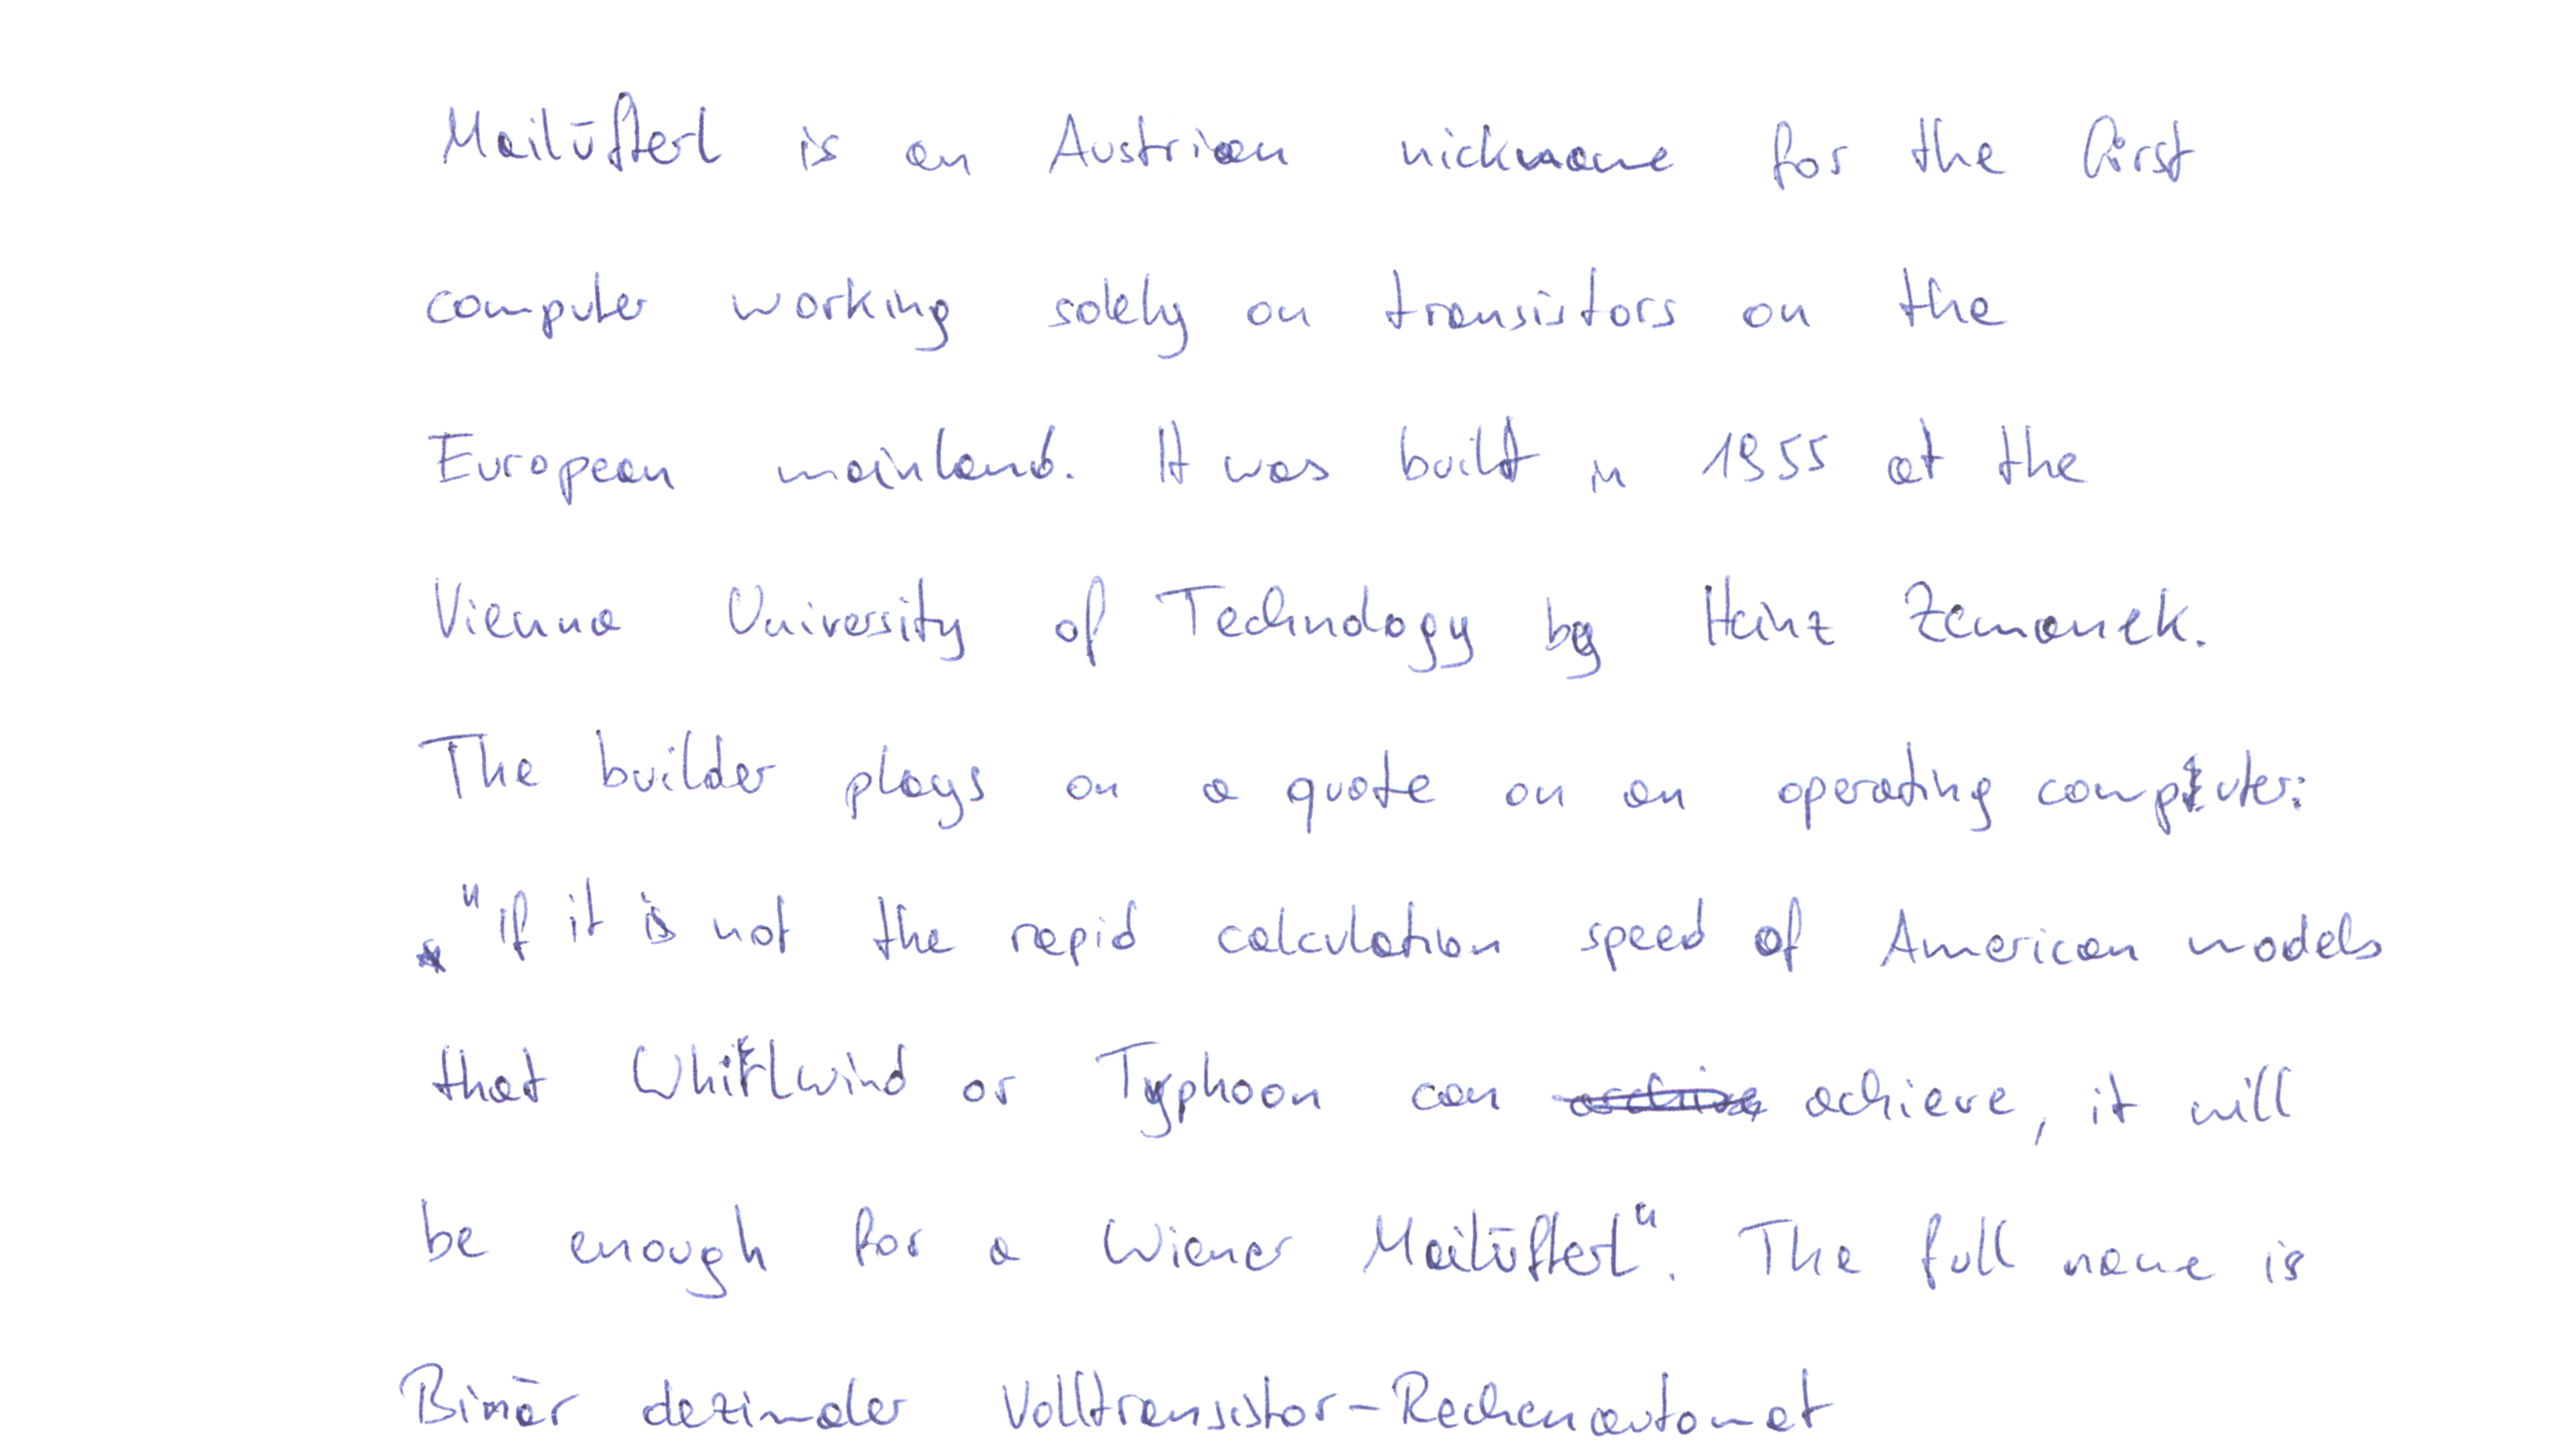 Mailüfterl is an Austrian nickname for the first
computer working solely on transistors on the
European mainland. It was built in 1955 at the
Vienna University of Technology by Heinz Zemanek.
The builder plays on a quote on an operating computer:
"If it is not the rapid calculation speed of American models
that Whirlwind or Typhoon can achieve, it will
be enough for a Wiener Mailüfterl". The full name is
Binär dezimaler Volltransistor-Rechenautomat